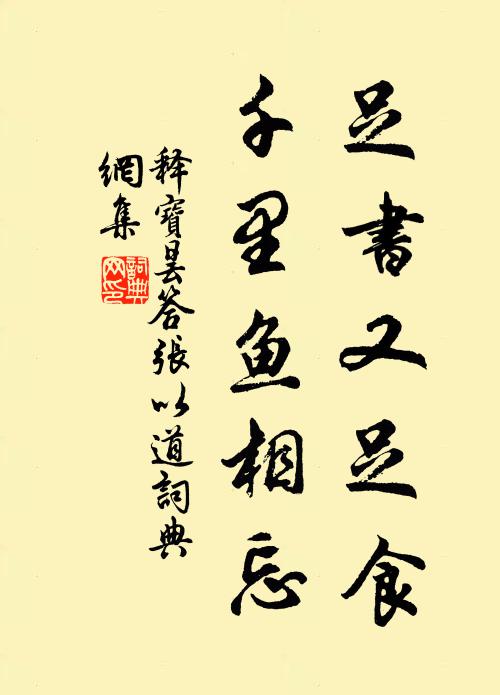 足書又足食
千里魚相忘
释寶曇答張以道詞典
網集
詞典網印